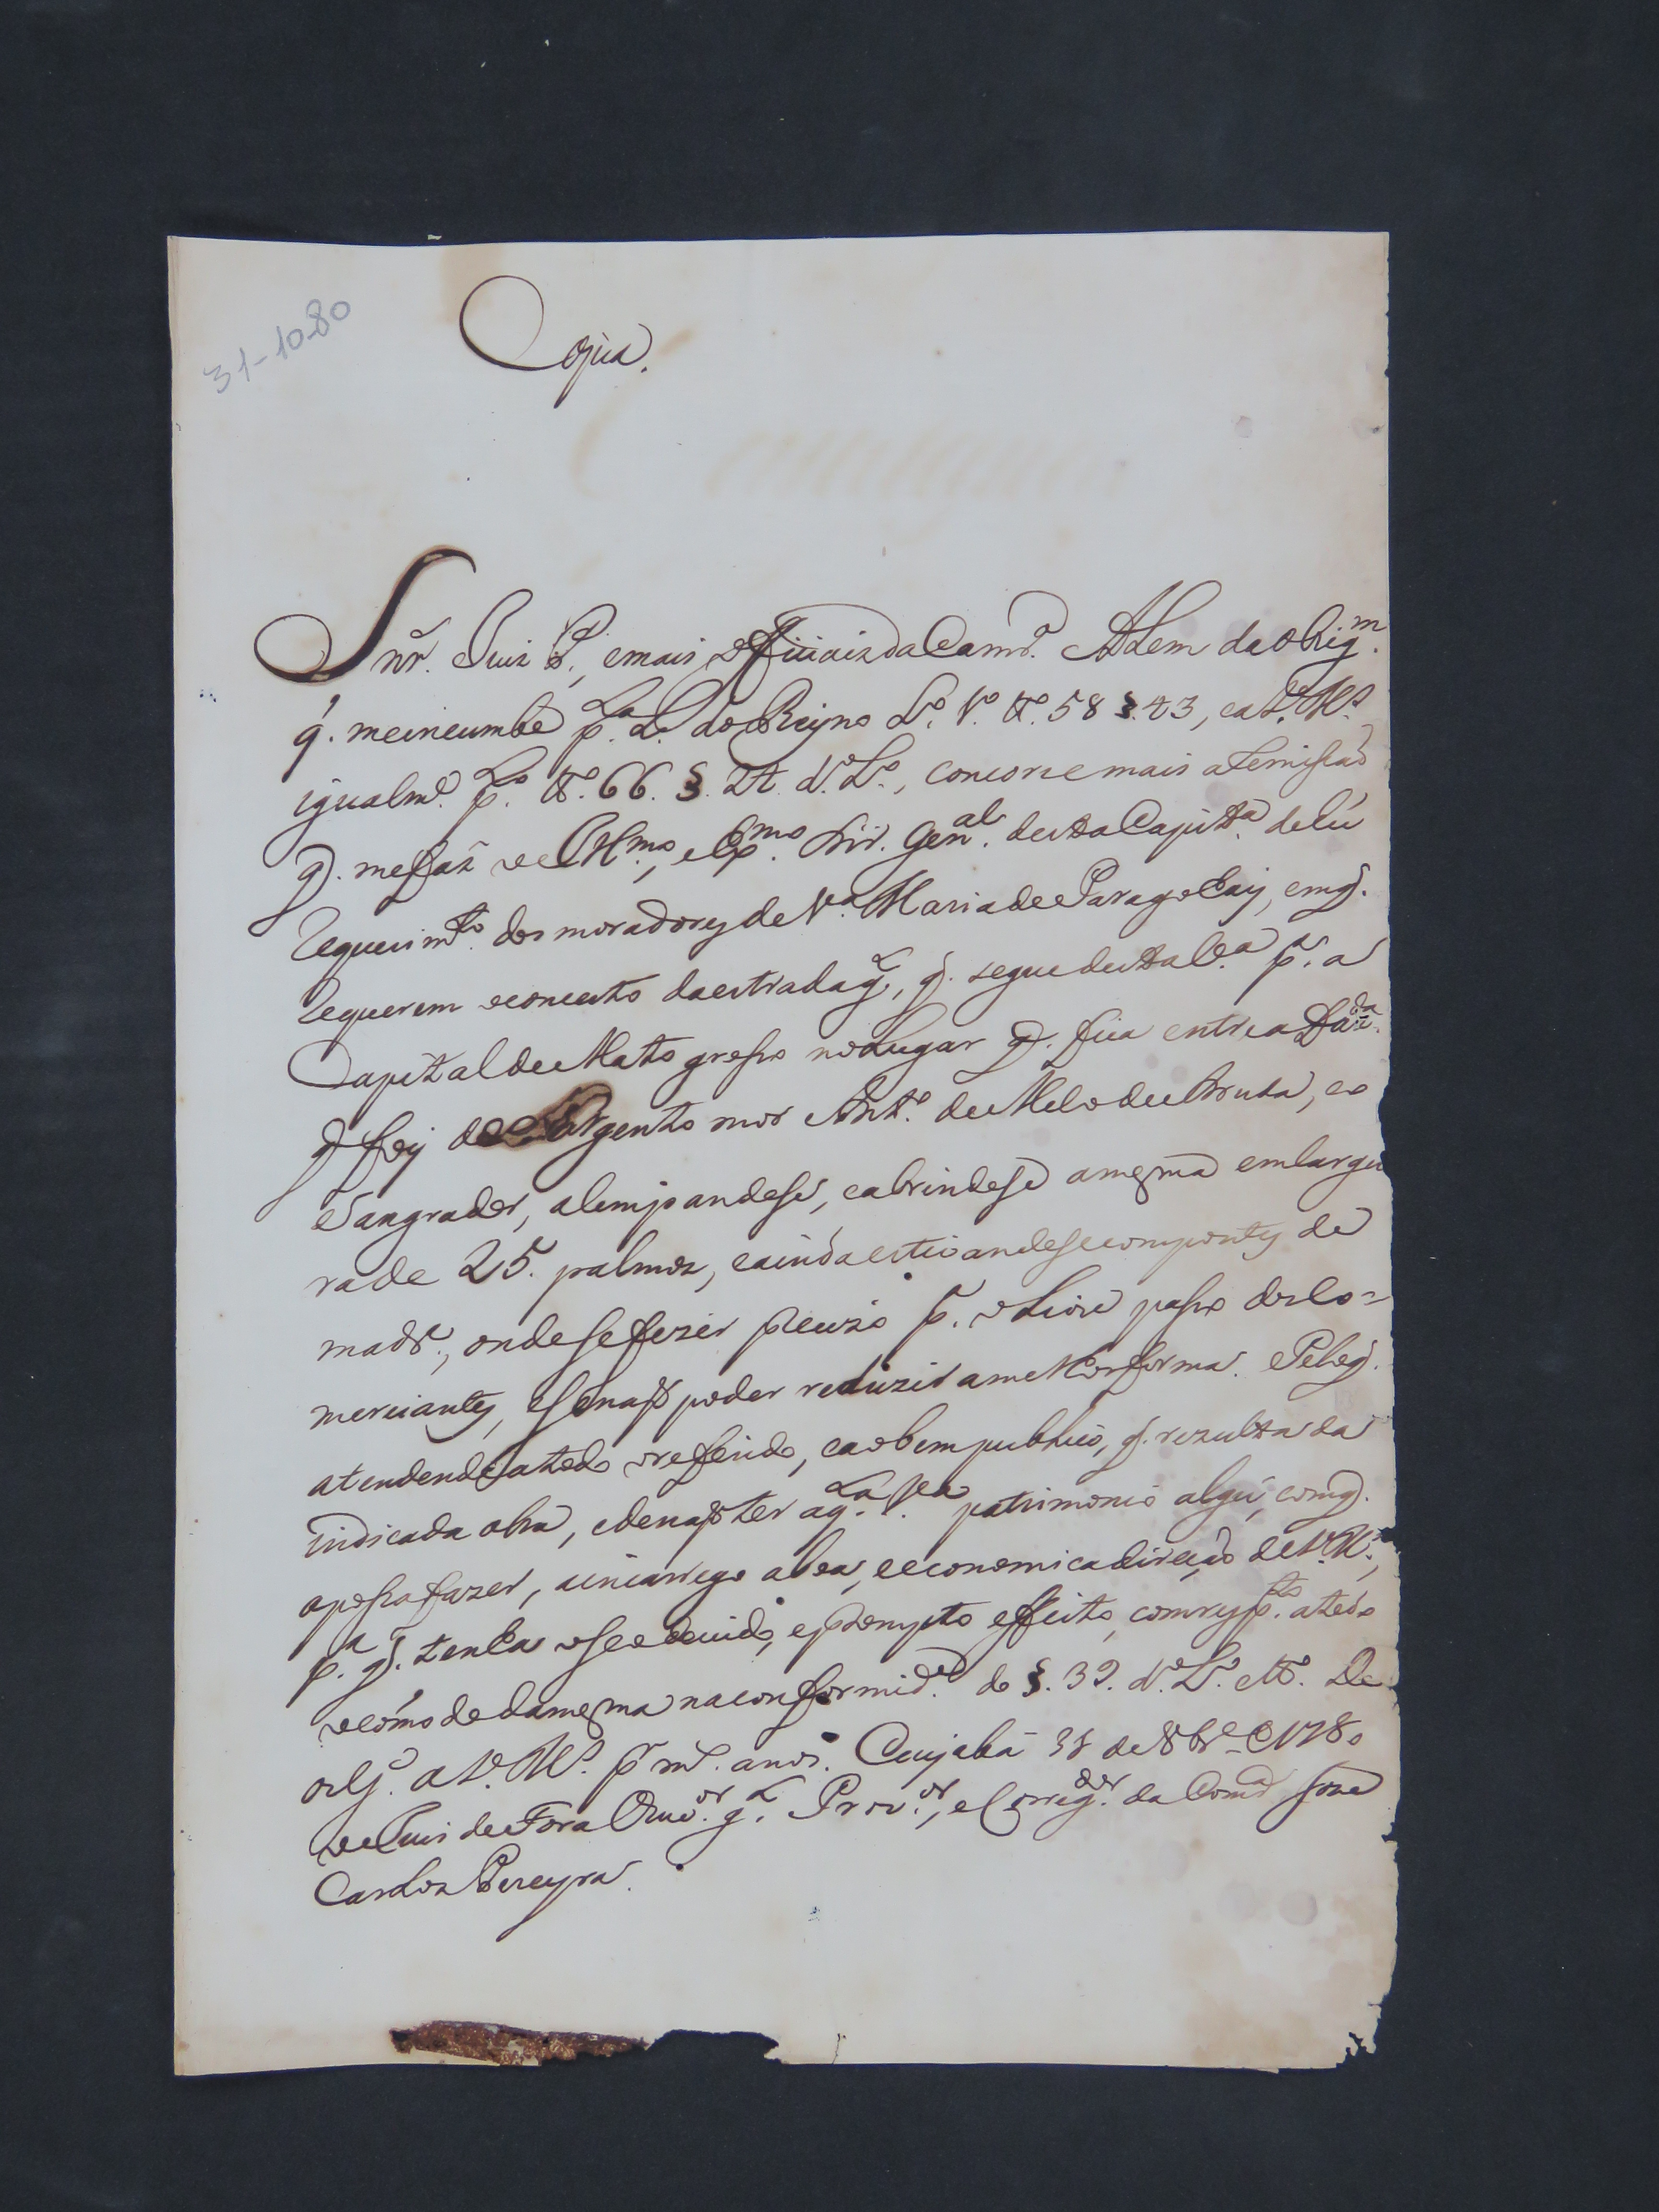 31-10-80
Copia.
Snr. Juiz P., e mais officiaiz da Camr.ª Alem da obrig.m
q. me incumbe p.La L. do Reyno L.º 1.º tt.º 58 §. 43, e a V. M.s
igualm.e p.Lo tt.º 66. §. 24. d.º L.º, concorre mais a Remissaõ
q. me fáz o Ill.mo, e Ex.mo Snr. Gen.al desta Capitta. de hú
requerim.to dos moradores de V.ª Maria de Paragoay, em q.
requerem o concerto da estrada g.L, q. segue desta V.ª p.ª a
Capital de Matto grosso no Lugar q. fica entre a Faz.da
q foy do Sargento mór Ant.º de Melo de
Sangrador, alimpandose, e abrindose a mesma em largu
ra de 25. palmos, e ainda estivandese com pontes de
madr.ª, onde se fizer precizo p.ª o Livre passo dos Co=
merciantes, e se naõ poder reduzir a melhor forma. Pelo q.
atendendo a todo o referido, e ao bem publico, q. rezulta da
indicada obra, e de naõ ter aq.La V.ª patrimonio algú, com q.
a possa fazer, a incarrego a boa, e economica direçaõ de V. M.s,
p.ª q. tenha o seo devido, e prompto effeito, com resp.to a todo
o cómodo da mesma na conformid.e do §. 39. d.º L.º e tt.º De
os g.e a V. M.s p.r m.s anos. Cuyabá 31 de 8br.º de 1780
o Juis de Fora Ouv.or g.L Prov.or, e Correg.dor da Comc.ª Joze
Carlos Pereyra.